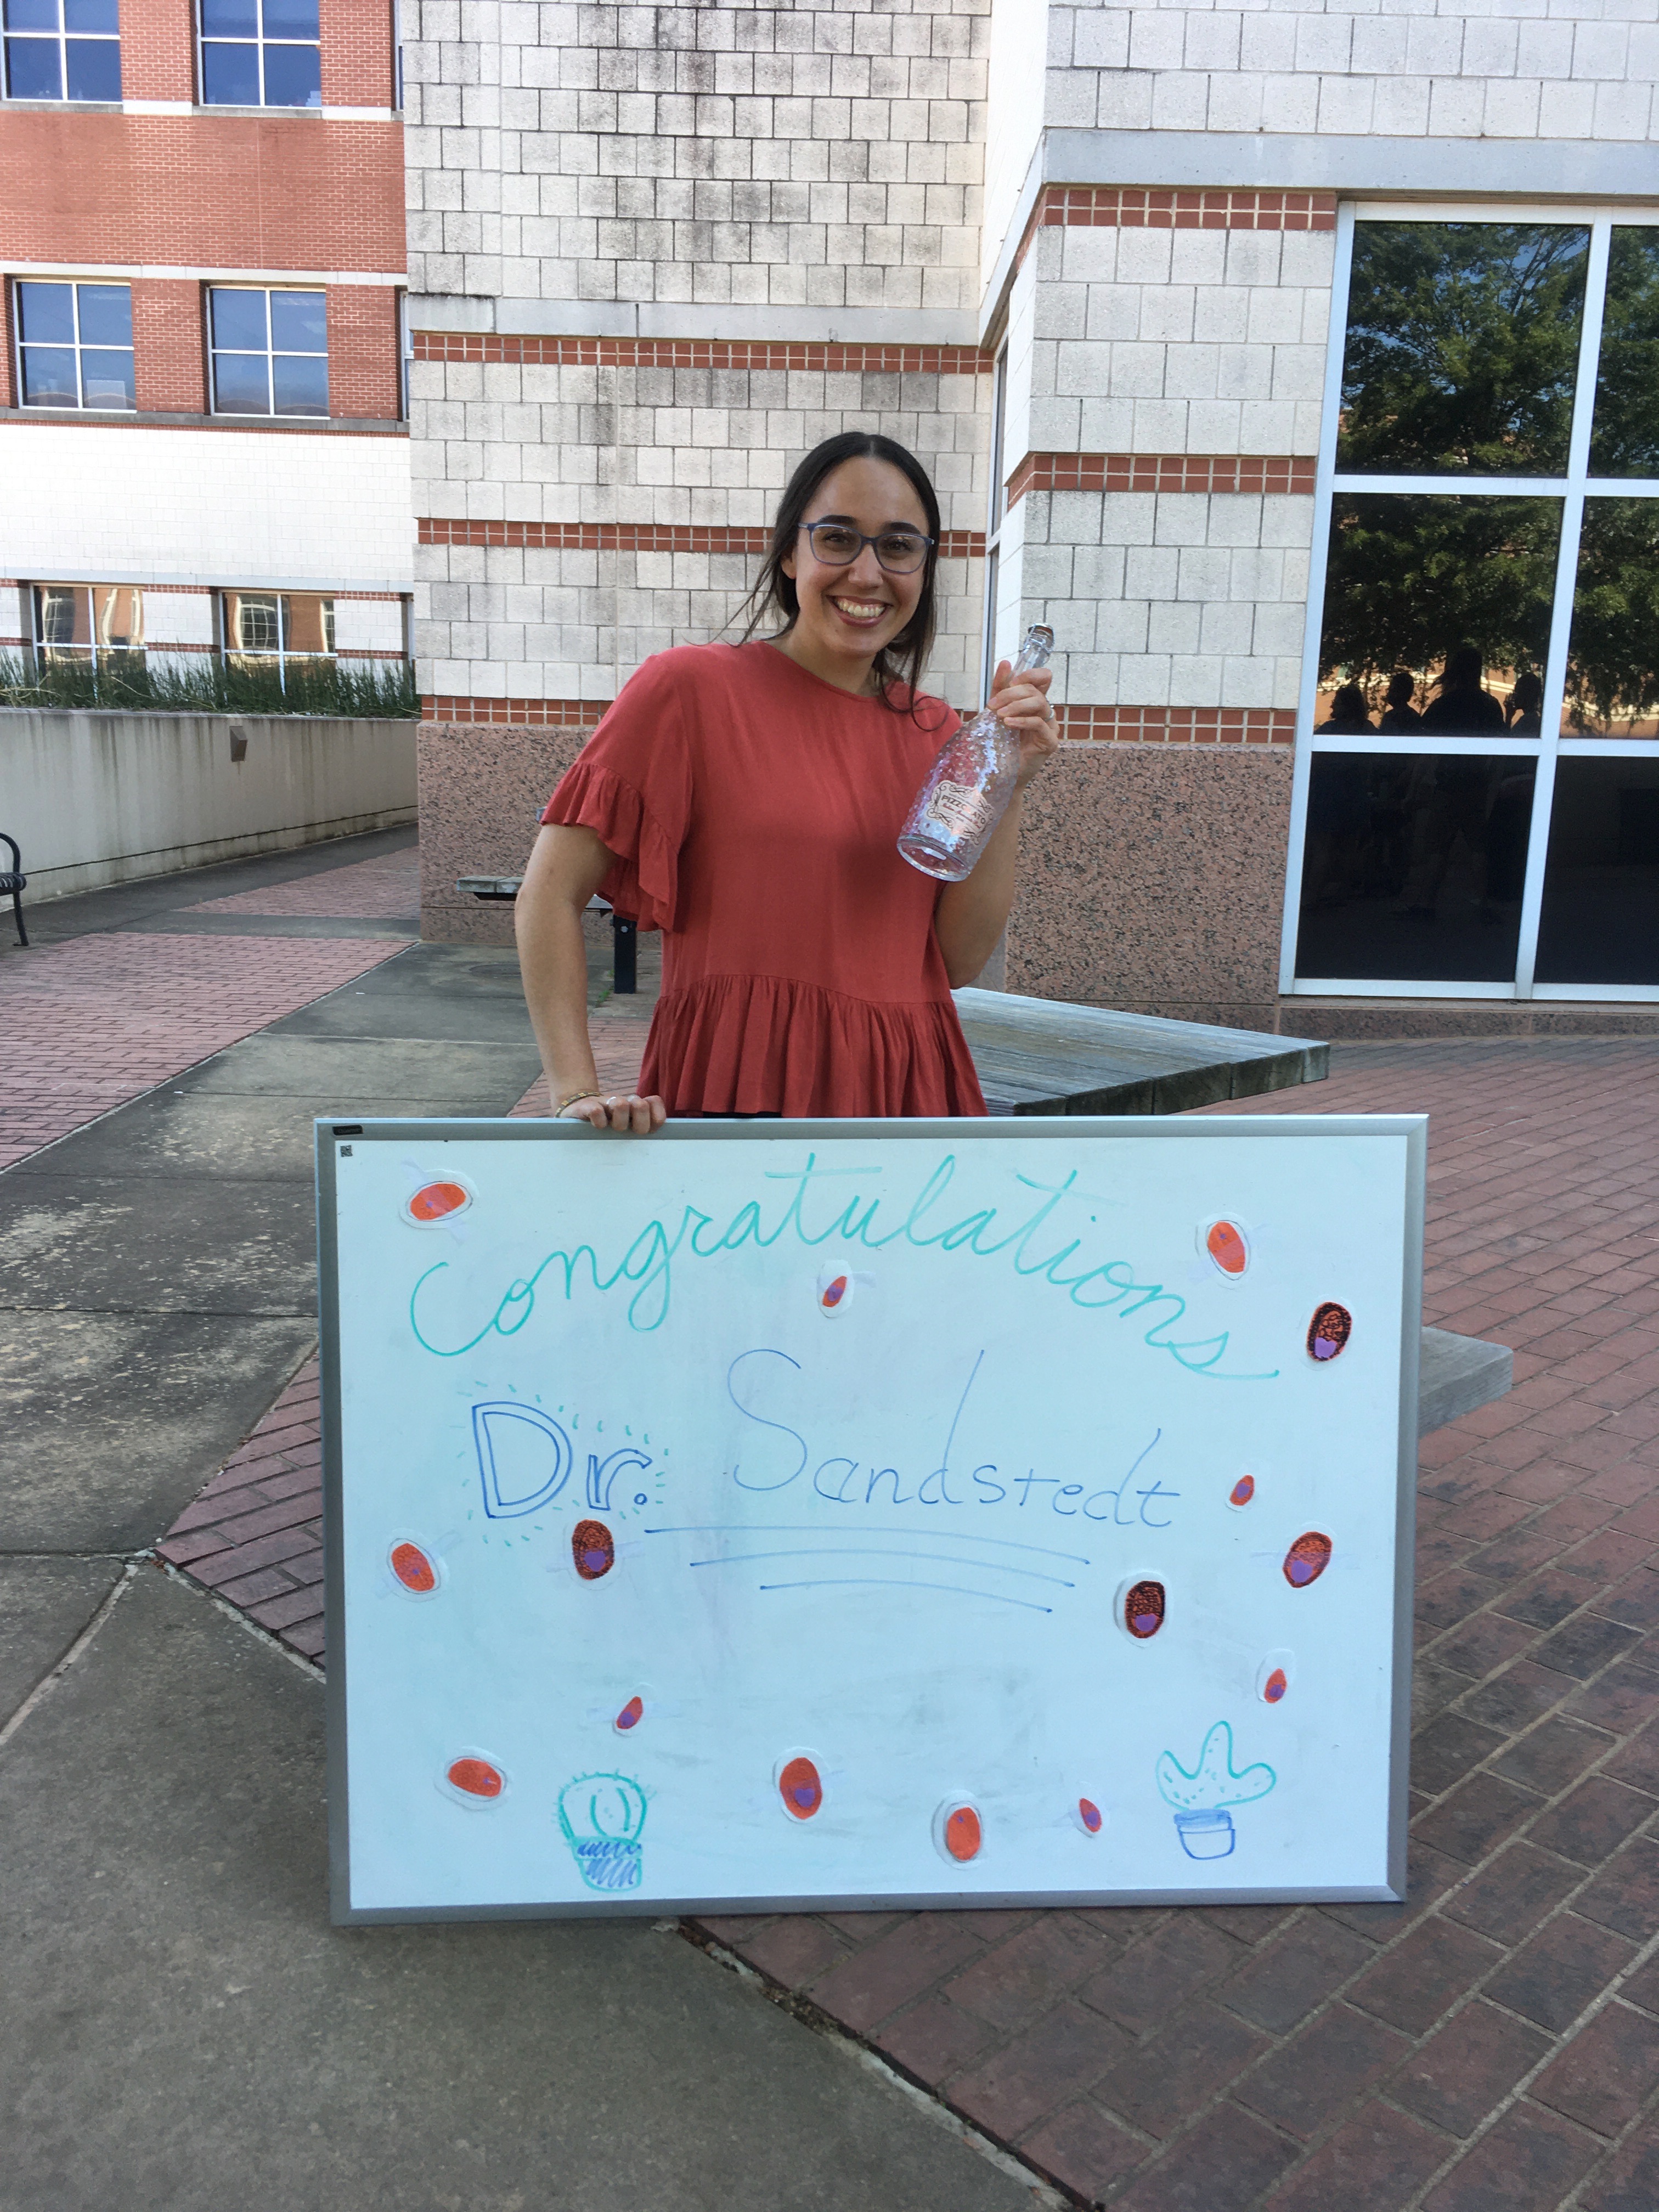 Congratulations
Dr. Sandstedt